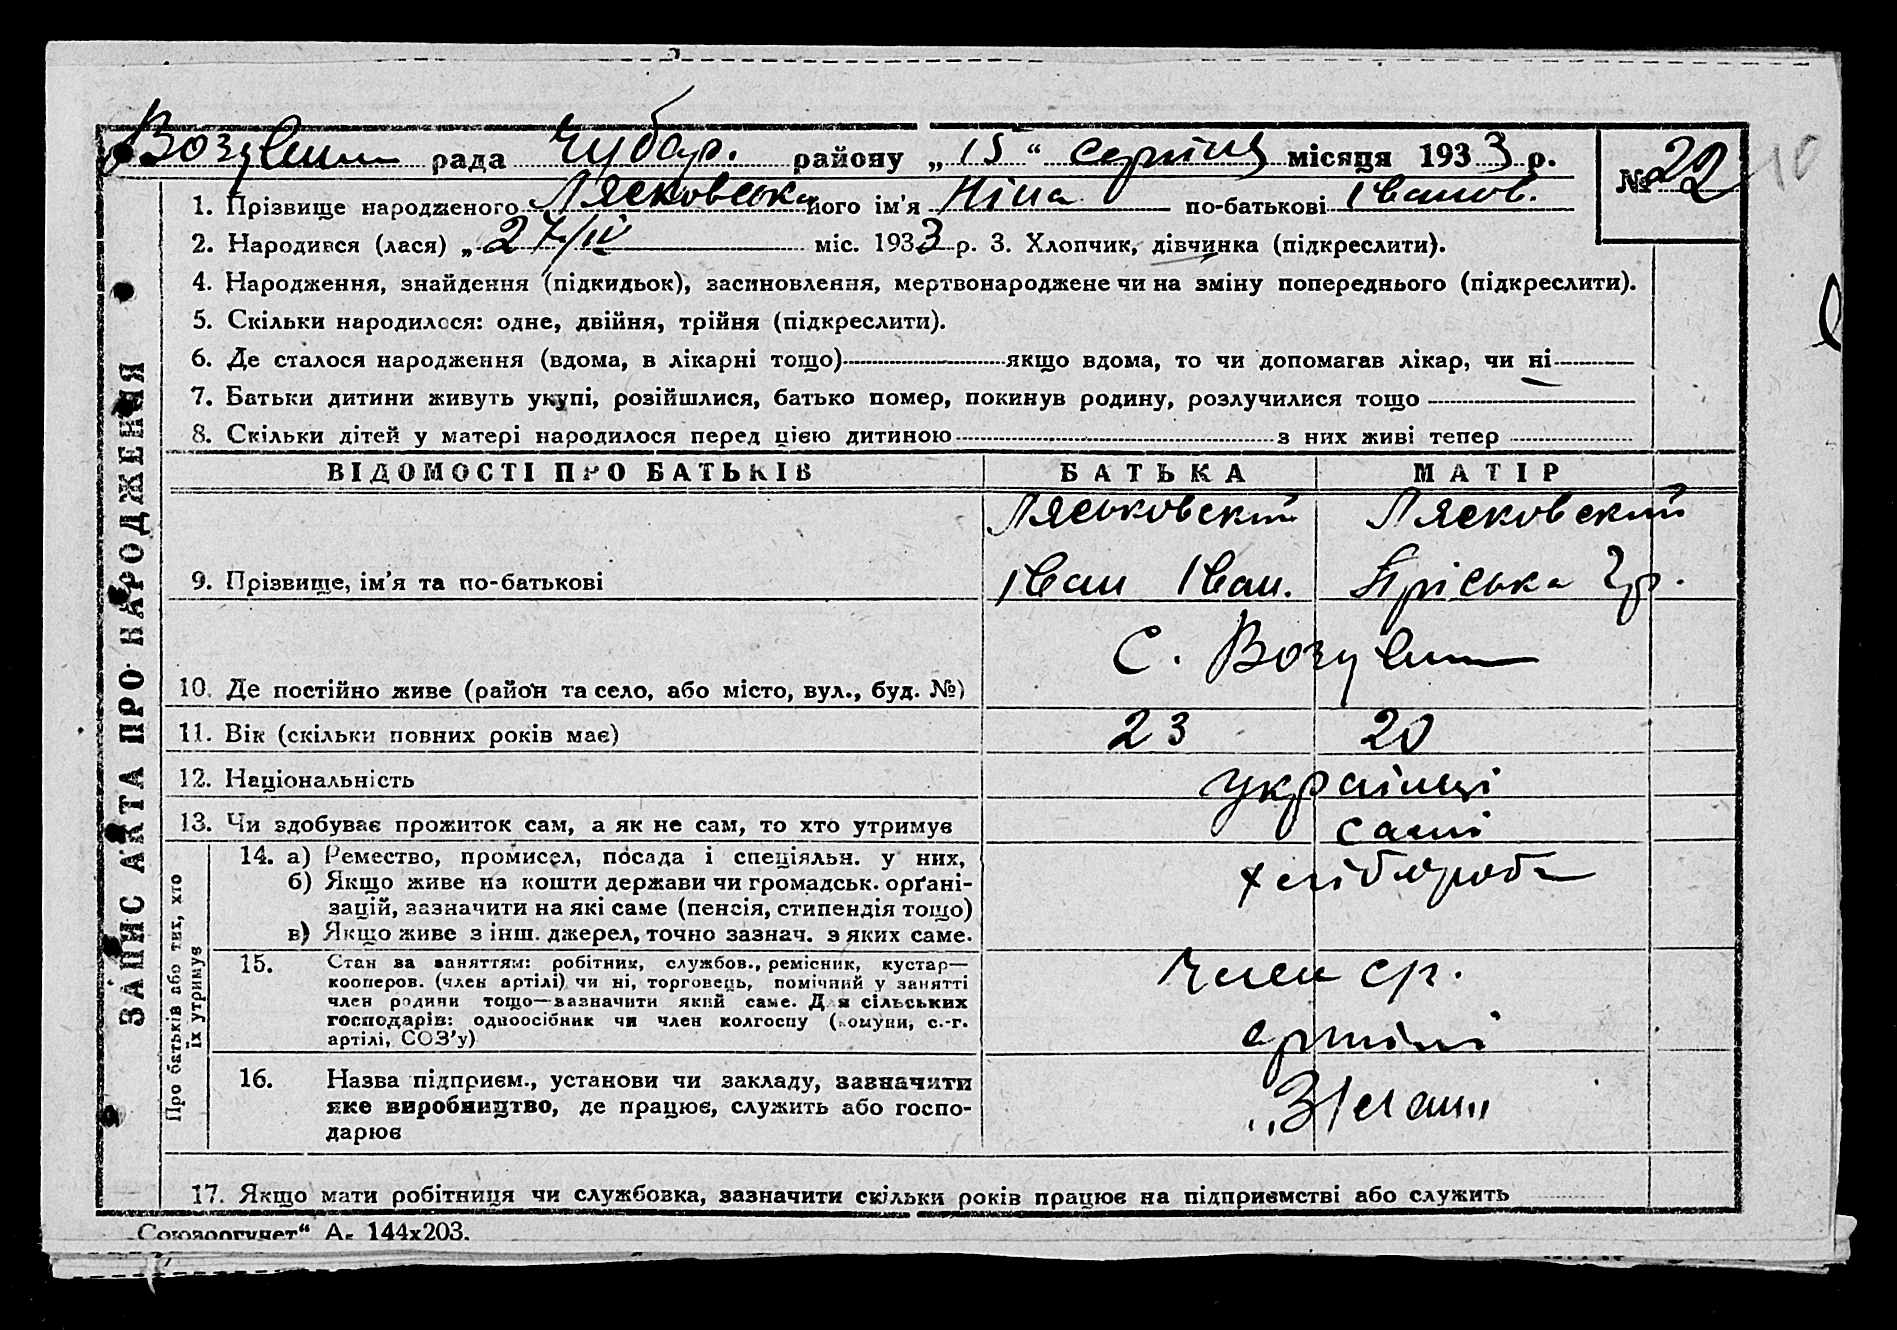 Возувськ рада Чубар. району „15“ серпня місяця 1933 р.
№ 22
10
1. Прізвище народженого Лясковська його ім'я Ніна по-батькові Іванов.
2. Народився (лася) „27/IV міс. 1933 р. 3. Хлопчик, дівчинка (підкреслити).
4. Народження, знайдення (підкидьок), засиновлення, мертвонароджене чи на зміну попереднього (підкреслити).
5. Скільки народилося: одне, двійня, трійня (підкреслити).
6. Де сталося народження (вдома, в лікарні тощо) якщо вдома, то чи допомагав лікар, чи ні
7. Батьки дитини живуть укупі, розійшлися, батько помер, покинув родину, розлучилися тощо
8. Скільки дітей у матері народилося перед цією дитиною з них живі тепер
ЗАПИС АКТА ПРО НАРОДЖЕННЯ
ВІДОМОСТІ ПРО БАТЬКІВ БАТЬКА МАТІР
Ляськовский Лясковский
9. Прізвище, ім'я та по-батькові Іван Іван. Пріська Гр.
С.
10. Де постійно живе (район та село, або місто, вул., буд. №)
11. Вік (скільки повних років має) 23 20
12. Національність українці
13. Чи здобуває прожиток сам, а як не сам, то хто утримує самі
Про батьків або тих, хто
їх утримує
14. а) Ремество, промисел, посада і спеціяльн. у них, хліборob
б) Якщо живе на кошти держави чи громадськ. орґані-
зацій, зазначити на які саме (пенсія, стипендія тощо)
в) Якщо живе з інш. джерел, точно зазнач. з яких саме.
15. Стан за заняттям: робітник, службов., ремісник, кустар— член ср.
кооперов. (член артілі) чи ні, торговець, помічний у занятті
член родини тощо—зазначити який саме. Для сільських
господарів: одноосібник чи член колгоспу (комуни, с.-г. артілі
артілі, СОЗ'у)
16. Назва підприєм., установи чи закладу, зазначити
яке виробництво, де працює, служить або госпо-
дарює
17. Якщо мати робітниця чи службовка, зазначити скільки років працює на підприємстві або служить
„Союзоргучет“ А₅ 144х203.